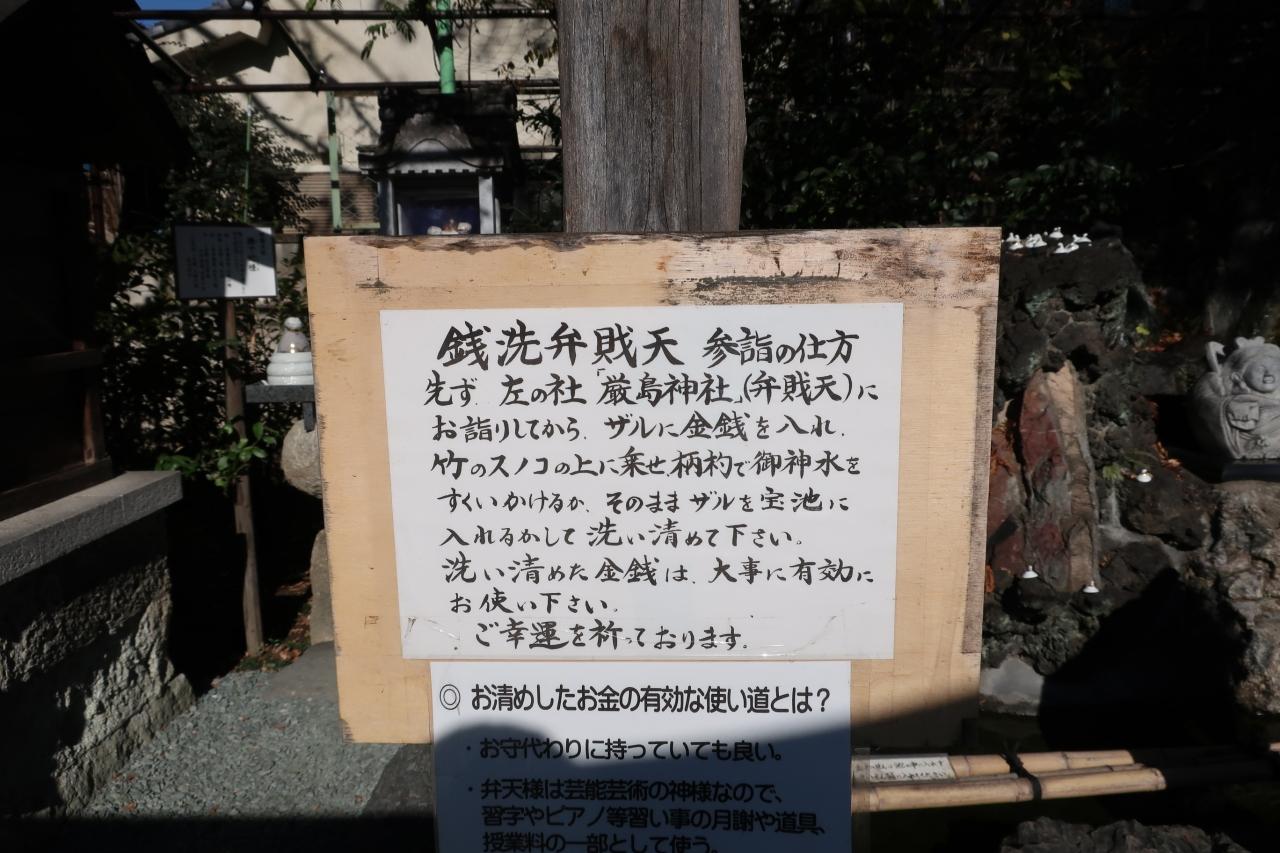 銭洗弁財天 参詣の仕方
先ず、左の社「厳島神社」(弁財天)に
お詣りしてから、ザルに金銭を入れ、
竹のスノコの上に乗せ、柄杓で御神水を
すくいかけるか、そのままザルを宝池に
入れるかして洗い清めて下さい。
洗い清めた金銭は、大事に有効に
お使い下さい。
ご幸運を祈っております。
◎ お清めしたお金の有効な使い道とは？
・お守代わりに持っていても良い。
・弁天様は芸能芸術の神様なので、
習字やピアノ等習い事の月謝や道具、
授業料の一部として使う。